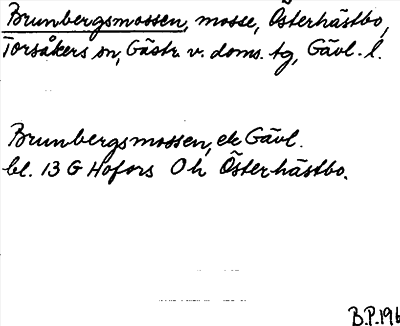 Brunbergsmossen, mosse, Österhästbo,
Torsåkers sn, Gästr. v. doms. tg, Gävl. l.
Brunbergsmossen, ek Gävl.
bl. 13 G Hofors Oh Österhästbo.
B.P. 196